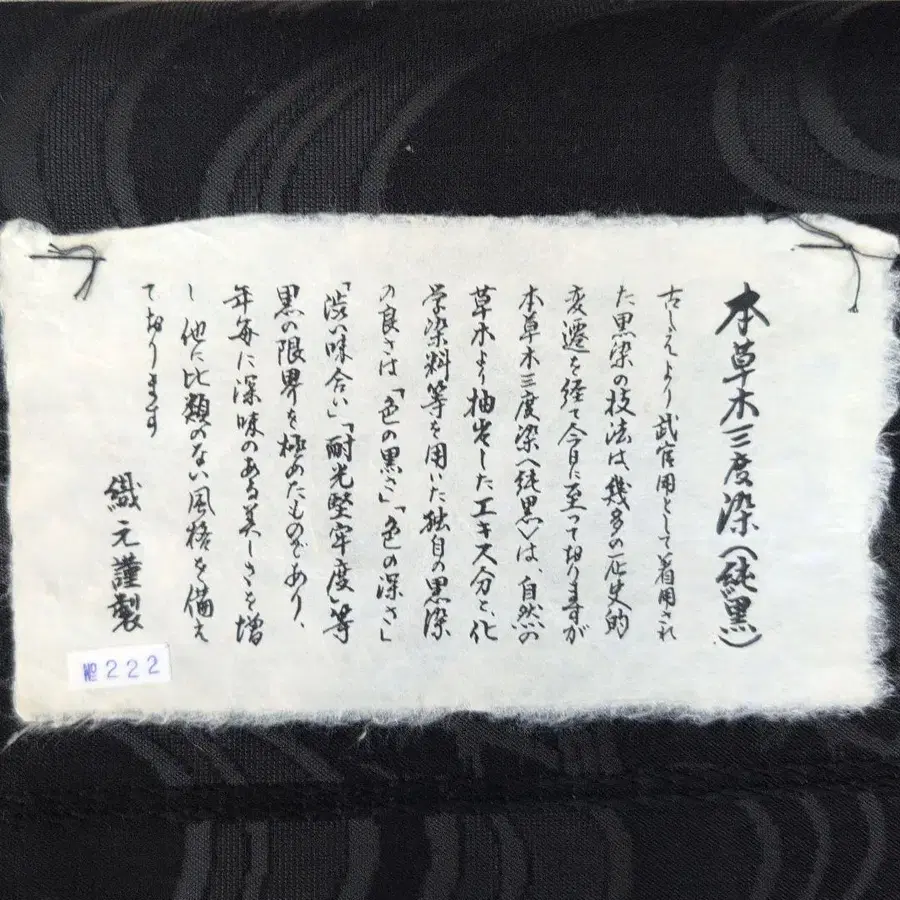 本草木三度染（純黒）
古しえより武官用として着用され
た黒染の技法は、幾多の歴史的
変遷を経て今日に至っておりますが
本草木三度染〈純黒〉は、自然の
草木より抽出したエキス分と、化
学染料等を用いた独自の黒染
の良さは「色の黒さ」「色の深さ」
「渋い味合い」「耐光堅牢度」等
黒の限界を極めたものであり、
年毎に深味のある美しさを増
し他に比類のない風格を備え
ております
織元謹製
№222